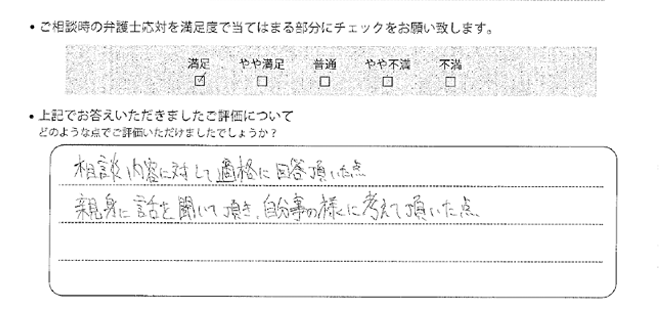 ・ご相談時の弁護士応対を満足度で当てはまる部分にチェックをお願い致します。
満足 やや満足 普通 やや不満 不満
☑ ☐ ☐ ☐ ☐
・上記でお答えいただきましたご評価について
どのような点でご評価いただけましたでしょうか?
相談内容に対して適格に回答頂いた点
親身に話を聞いて頂き、自分事の様に考えて頂いた点